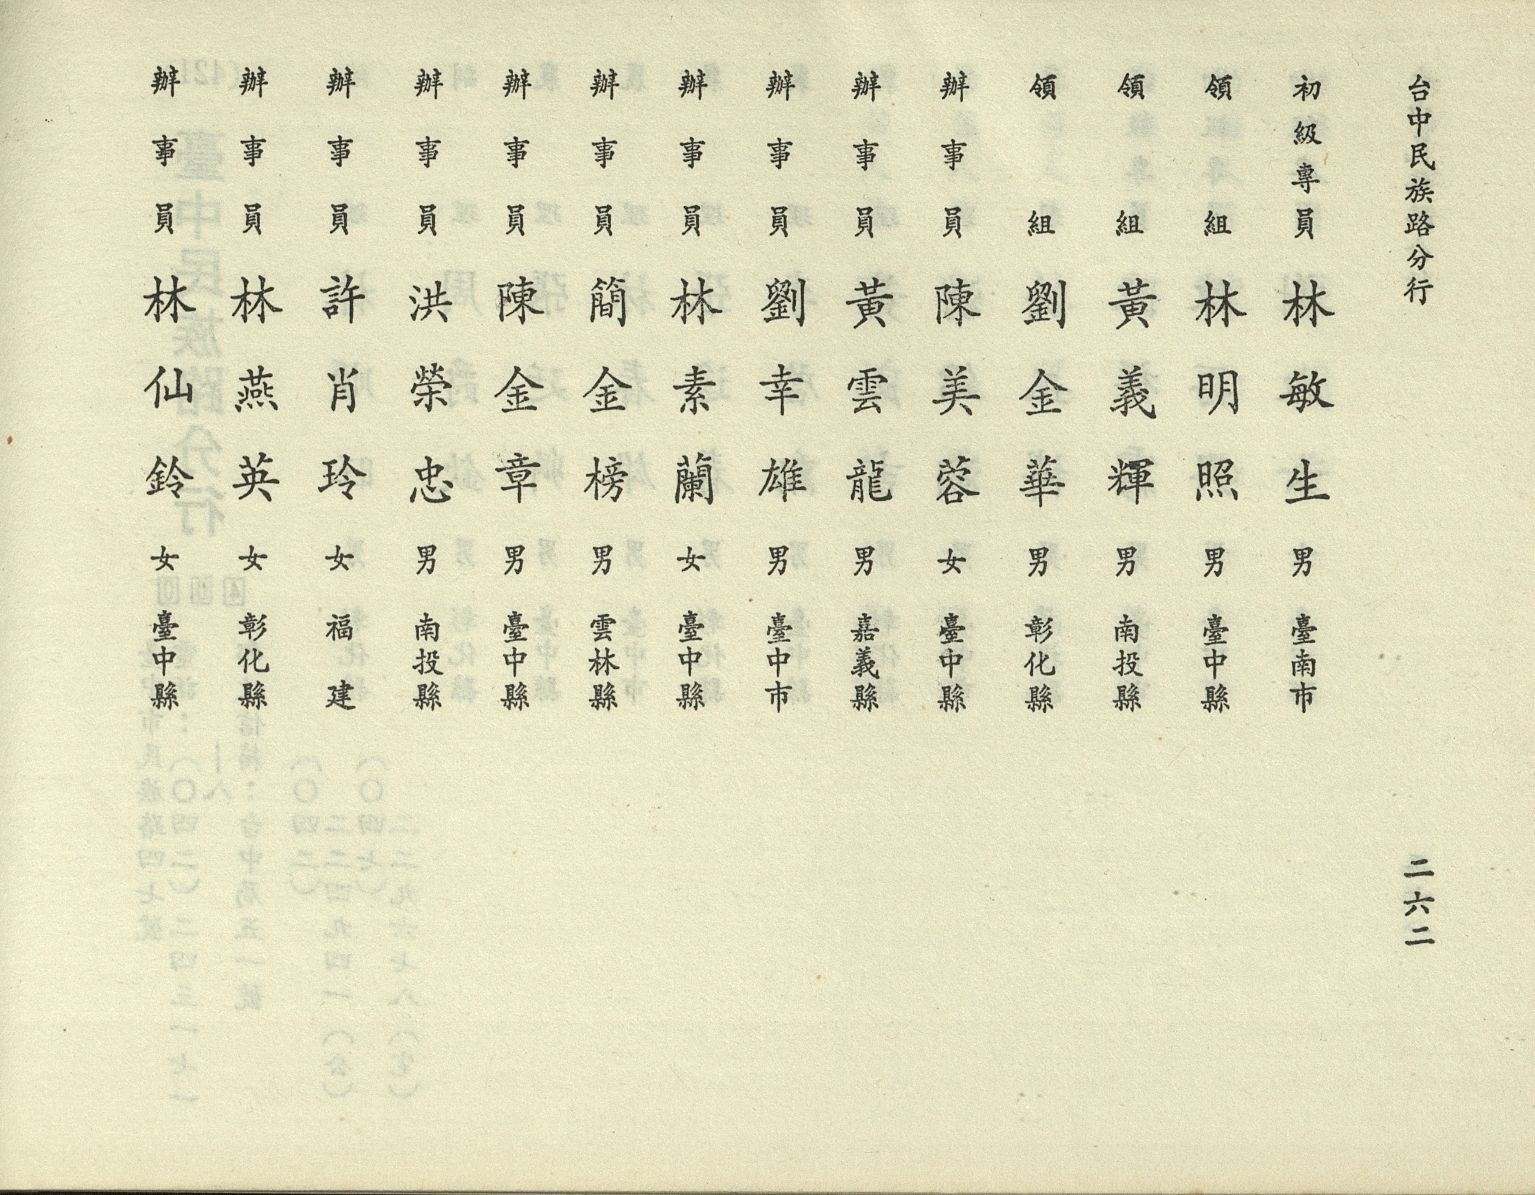 台中民族路分行
二六二
初級專員 林敏生 男 臺南市
領組 林明照 男 臺中縣
領組 黃義輝 男 南投縣
領組 劉金華 男 彰化縣
辦事員 陳美蓉 女 臺中縣
辦事員 黃雲龍 男 嘉義縣
辦事員 劉幸雄 男 臺中市
辦事員 林素蘭 女 臺中縣
辦事員 簡金榜 男 雲林縣
辦事員 陳金章 男 臺中縣
辦事員 洪榮忠 男 南投縣
辦事員 許肖玲 女 福建
辦事員 林燕英 女 彰化縣
辦事員 林仙鈴 女 臺中縣